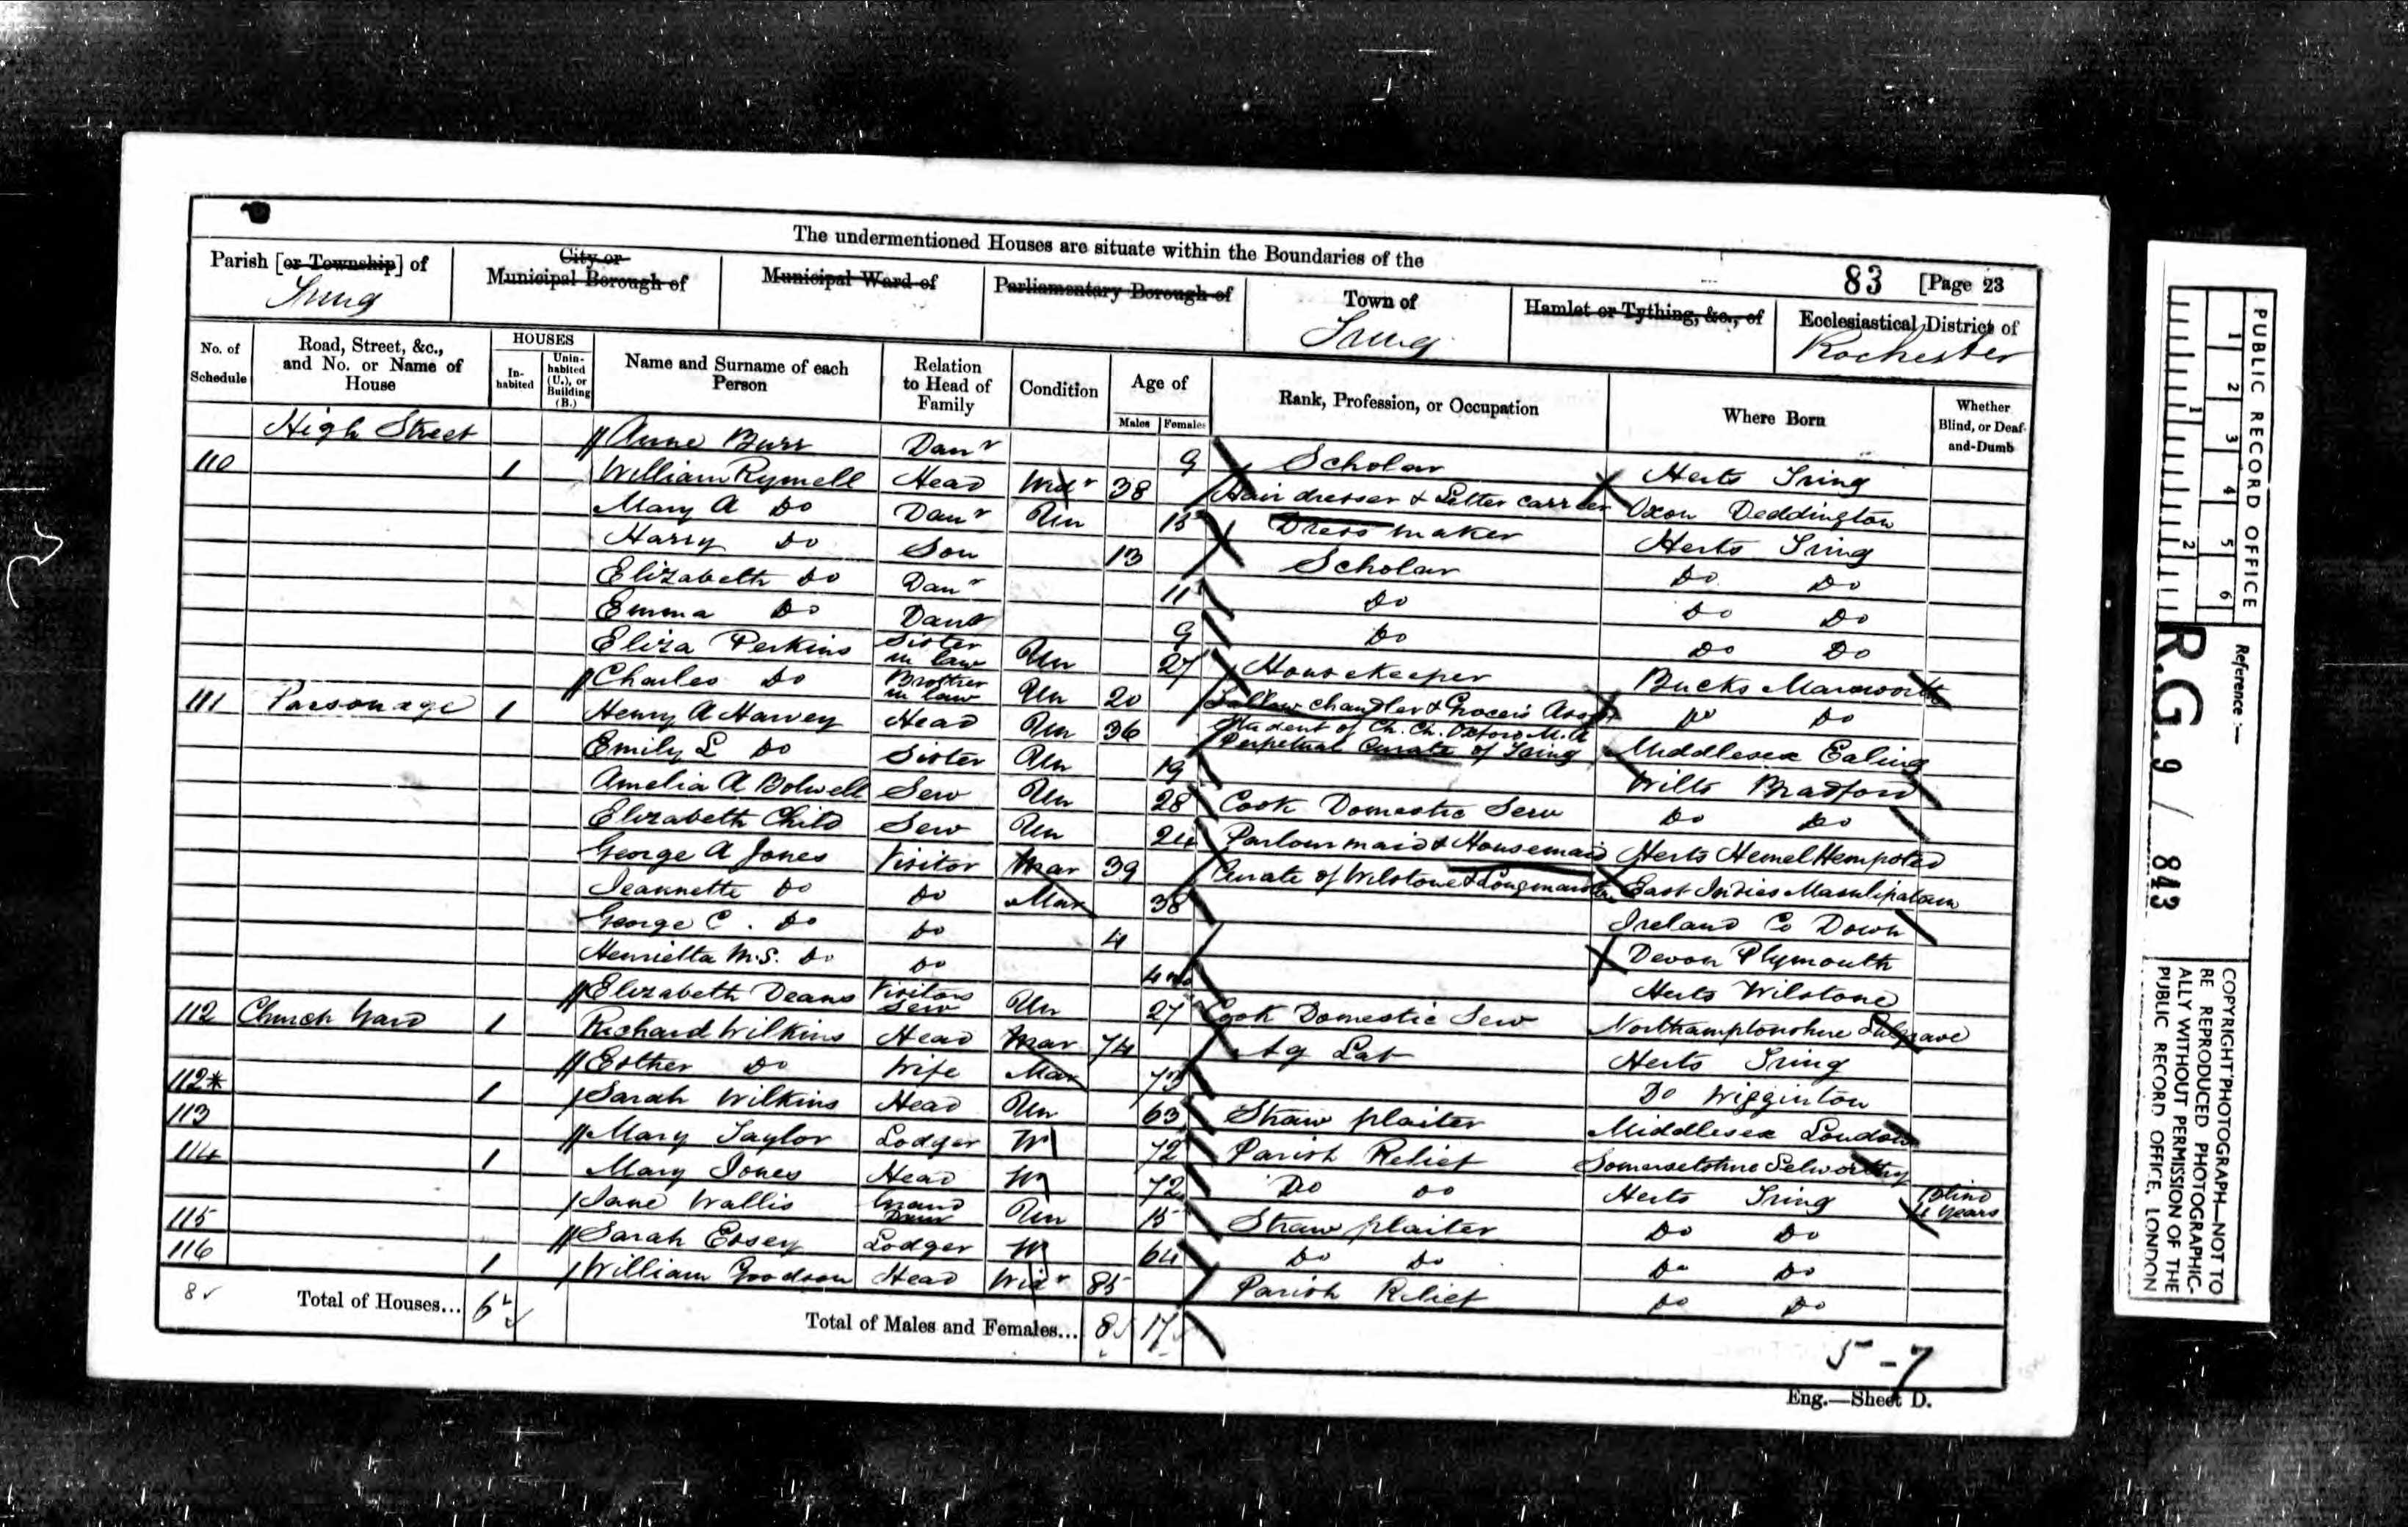 The undermentioned Houses are situate within the Boundaries of the
83 [Page 23
Parish [or Township] of
Tring
City or
Municipal Borough of
Municipal Ward of
Parliamentary Borough of
Town of
Tring
Hamlet or Tything, &c., of
Ecclesiastical District of
Rochester
No. of Schedule
Road, Street, &c., and No. or Name of House
HOUSES
In-habited
Unin-habited (U.), or Building (B.)
Name and Surname of each Person
Relation to Head of Family
Condition
Age of
Males Females
Rank, Profession, or Occupation
Where Born
Whether Blind, or Deaf-and-Dumb
High Street Anne Burr Daur 9 Scholar Herts Tring
110 1 William Rymell Head Widr 38 Hair dresser & Letter carrier Oxon Deddington
Mary A Do Daur Un 15 Dress maker Herts Tring
Harry Do Son 13 Scholar Do Do
Elizabeth Do Daur 11 Do Do Do
Emma Do Daur 9 Do Do Do
Eliza Perkins Sister in law Un 27 Housekeeper Bucks Marsworth
Charles Do Brother in law Un 20 Tallow chandler & Grocers Asst Do Do
111 Parsonage 1 Henry A Harvey Head Un 36 Student of Ch. Ch. Oxford M.A Perpetual Curate of Tring Middlesex Ealing
Emily L Do Sister Un 19 Wilts Bradford
Amelia A Bolwell Serv Un 28 Cook Domestic Serv Do Do
Elizabeth Child Serv Un 24 Parlourmaid & Housemaid Herts Hemel Hempsted
George A Jones Visitor Mar 39 Curate of Wilstone & Longmarston East Indies Masulipatam
Jeannette Do Do Mar 38 Ireland Co Down
George C. Do Do 4 Devon Plymouth
Henrietta M.S. Do Do 4 Herts Wilstone
Elizabeth Deans Visitors Serv Un 27 Cook Domestic Serv Northamptonshire Sulgrave
112 Church Yard 1 Richard Wilkins Head Mar 74 Ag Lab Herts Tring
Esther Do Wife Mar 73 Do Wigginton
112* 1 Sarah Wilkins Head Un 63 Straw plaiter Middlesex London
113 Mary Taylor Lodger W 72 Parish Relief Somersetshire Selworthy
114 1 Mary Jones Head W 72 Do Do Herts Tring Blind years
Jane Wallis Grand Daur Un 15 Straw plaiter Do Do
115 Sarah Essey Lodger W 64 Do Do Do Do
116 1 William Goodson Head Widr 85 Parish Relief Do Do
8 Total of Houses... 6 Total of Males and Females... 8 17
5-7
Eng.—Sheet D.
PUBLIC RECORD OFFICE
1 2 3 4 5 6
1 2
Reference :—
R.G. 9 / 843
COPYRIGHT PHOTOGRAPH—NOT TO
BE REPRODUCED PHOTOGRAPHIC-
ALLY WITHOUT PERMISSION OF THE
PUBLIC RECORD OFFICE, LONDON